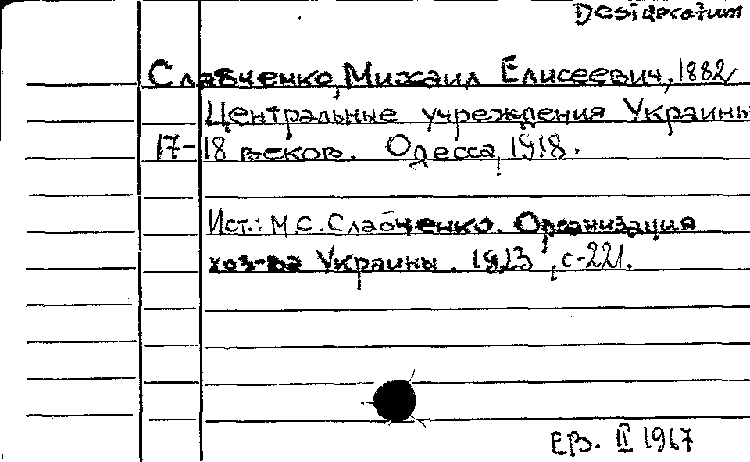 Desideratum
Слабченко, Михаил Елисеевич, 1882
Центральные учреждения Украины
17-18 веков. Одесса, 1918.
Ист.: М.С. Слабченко. Организация
хоз-ва Украины. 1923, с-221.
ЕВ. II 1967